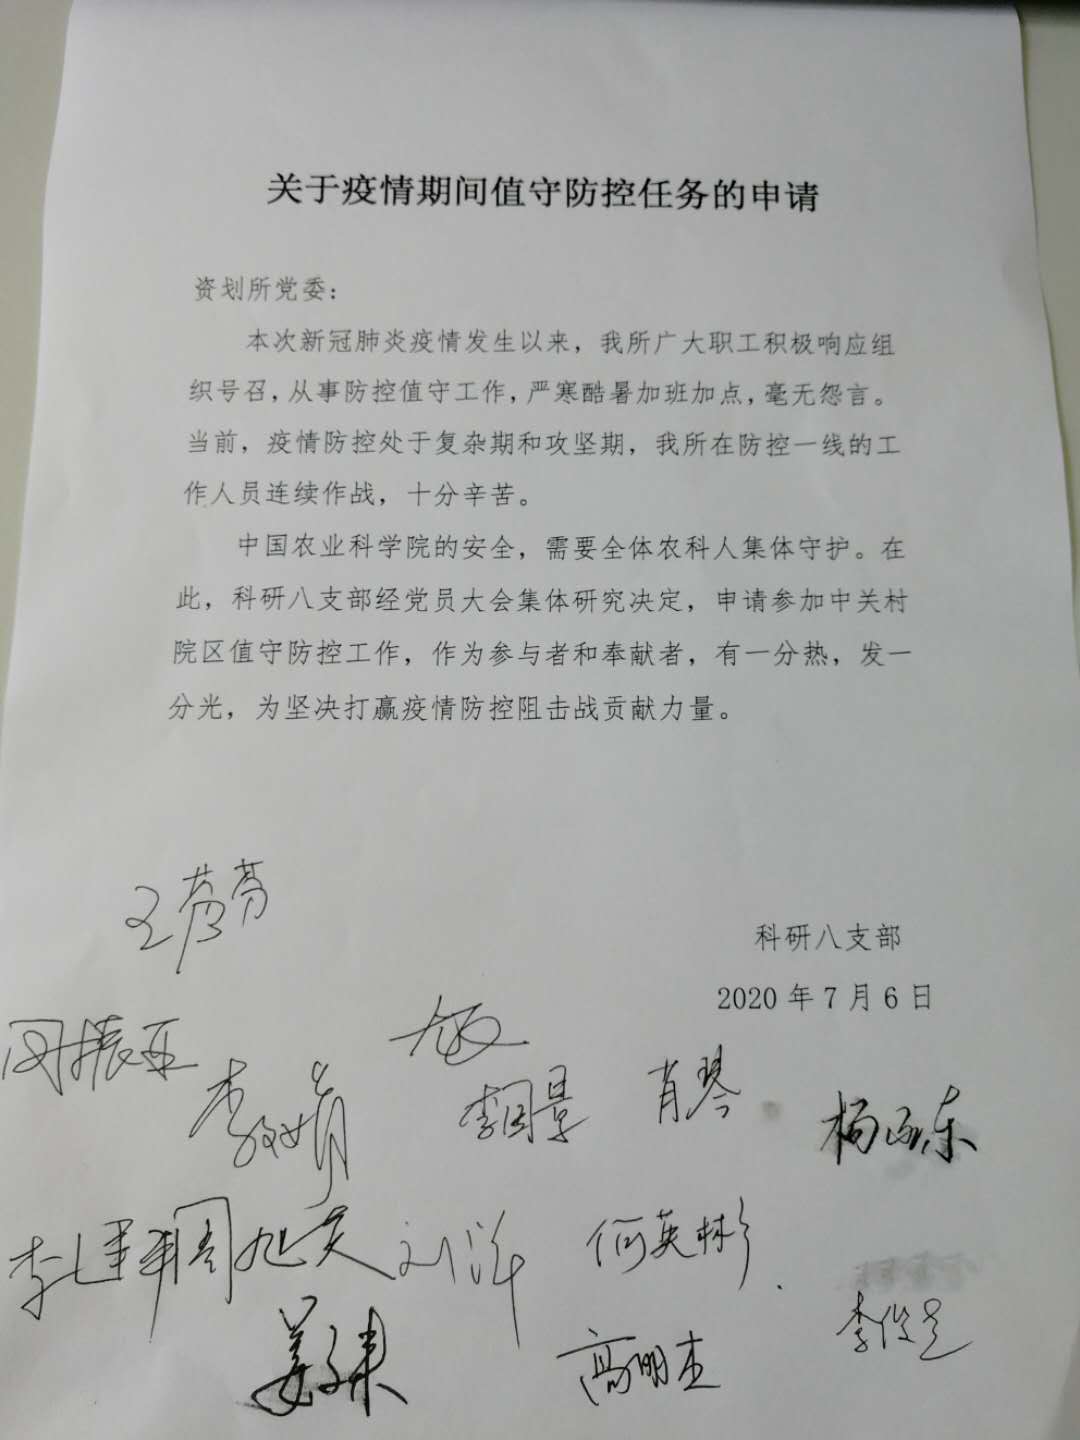 关于疫情期间值守防控任务的申请
资划所党委：
本次新冠肺炎疫情发生以来，我所广大职工积极响应组
织号召，从事防控值守工作，严寒酷暑加班加点，毫无怨言。
当前，疫情防控处于复杂期和攻坚期，我所在防控一线的工
作人员连续作战，十分辛苦。
中国农业科学院的安全，需要全体农科人集体守护。在
此，科研八支部经党员大会集体研究决定，申请参加中关村
院区值守防控工作，作为参与者和奉献者，有一分热，发一
分光，为坚决打赢疫情防控阻击战贡献力量。
科研八支部
2020 年 7 月 6 日
周振亚
肖琴
周旭英
何英彬
高明杰